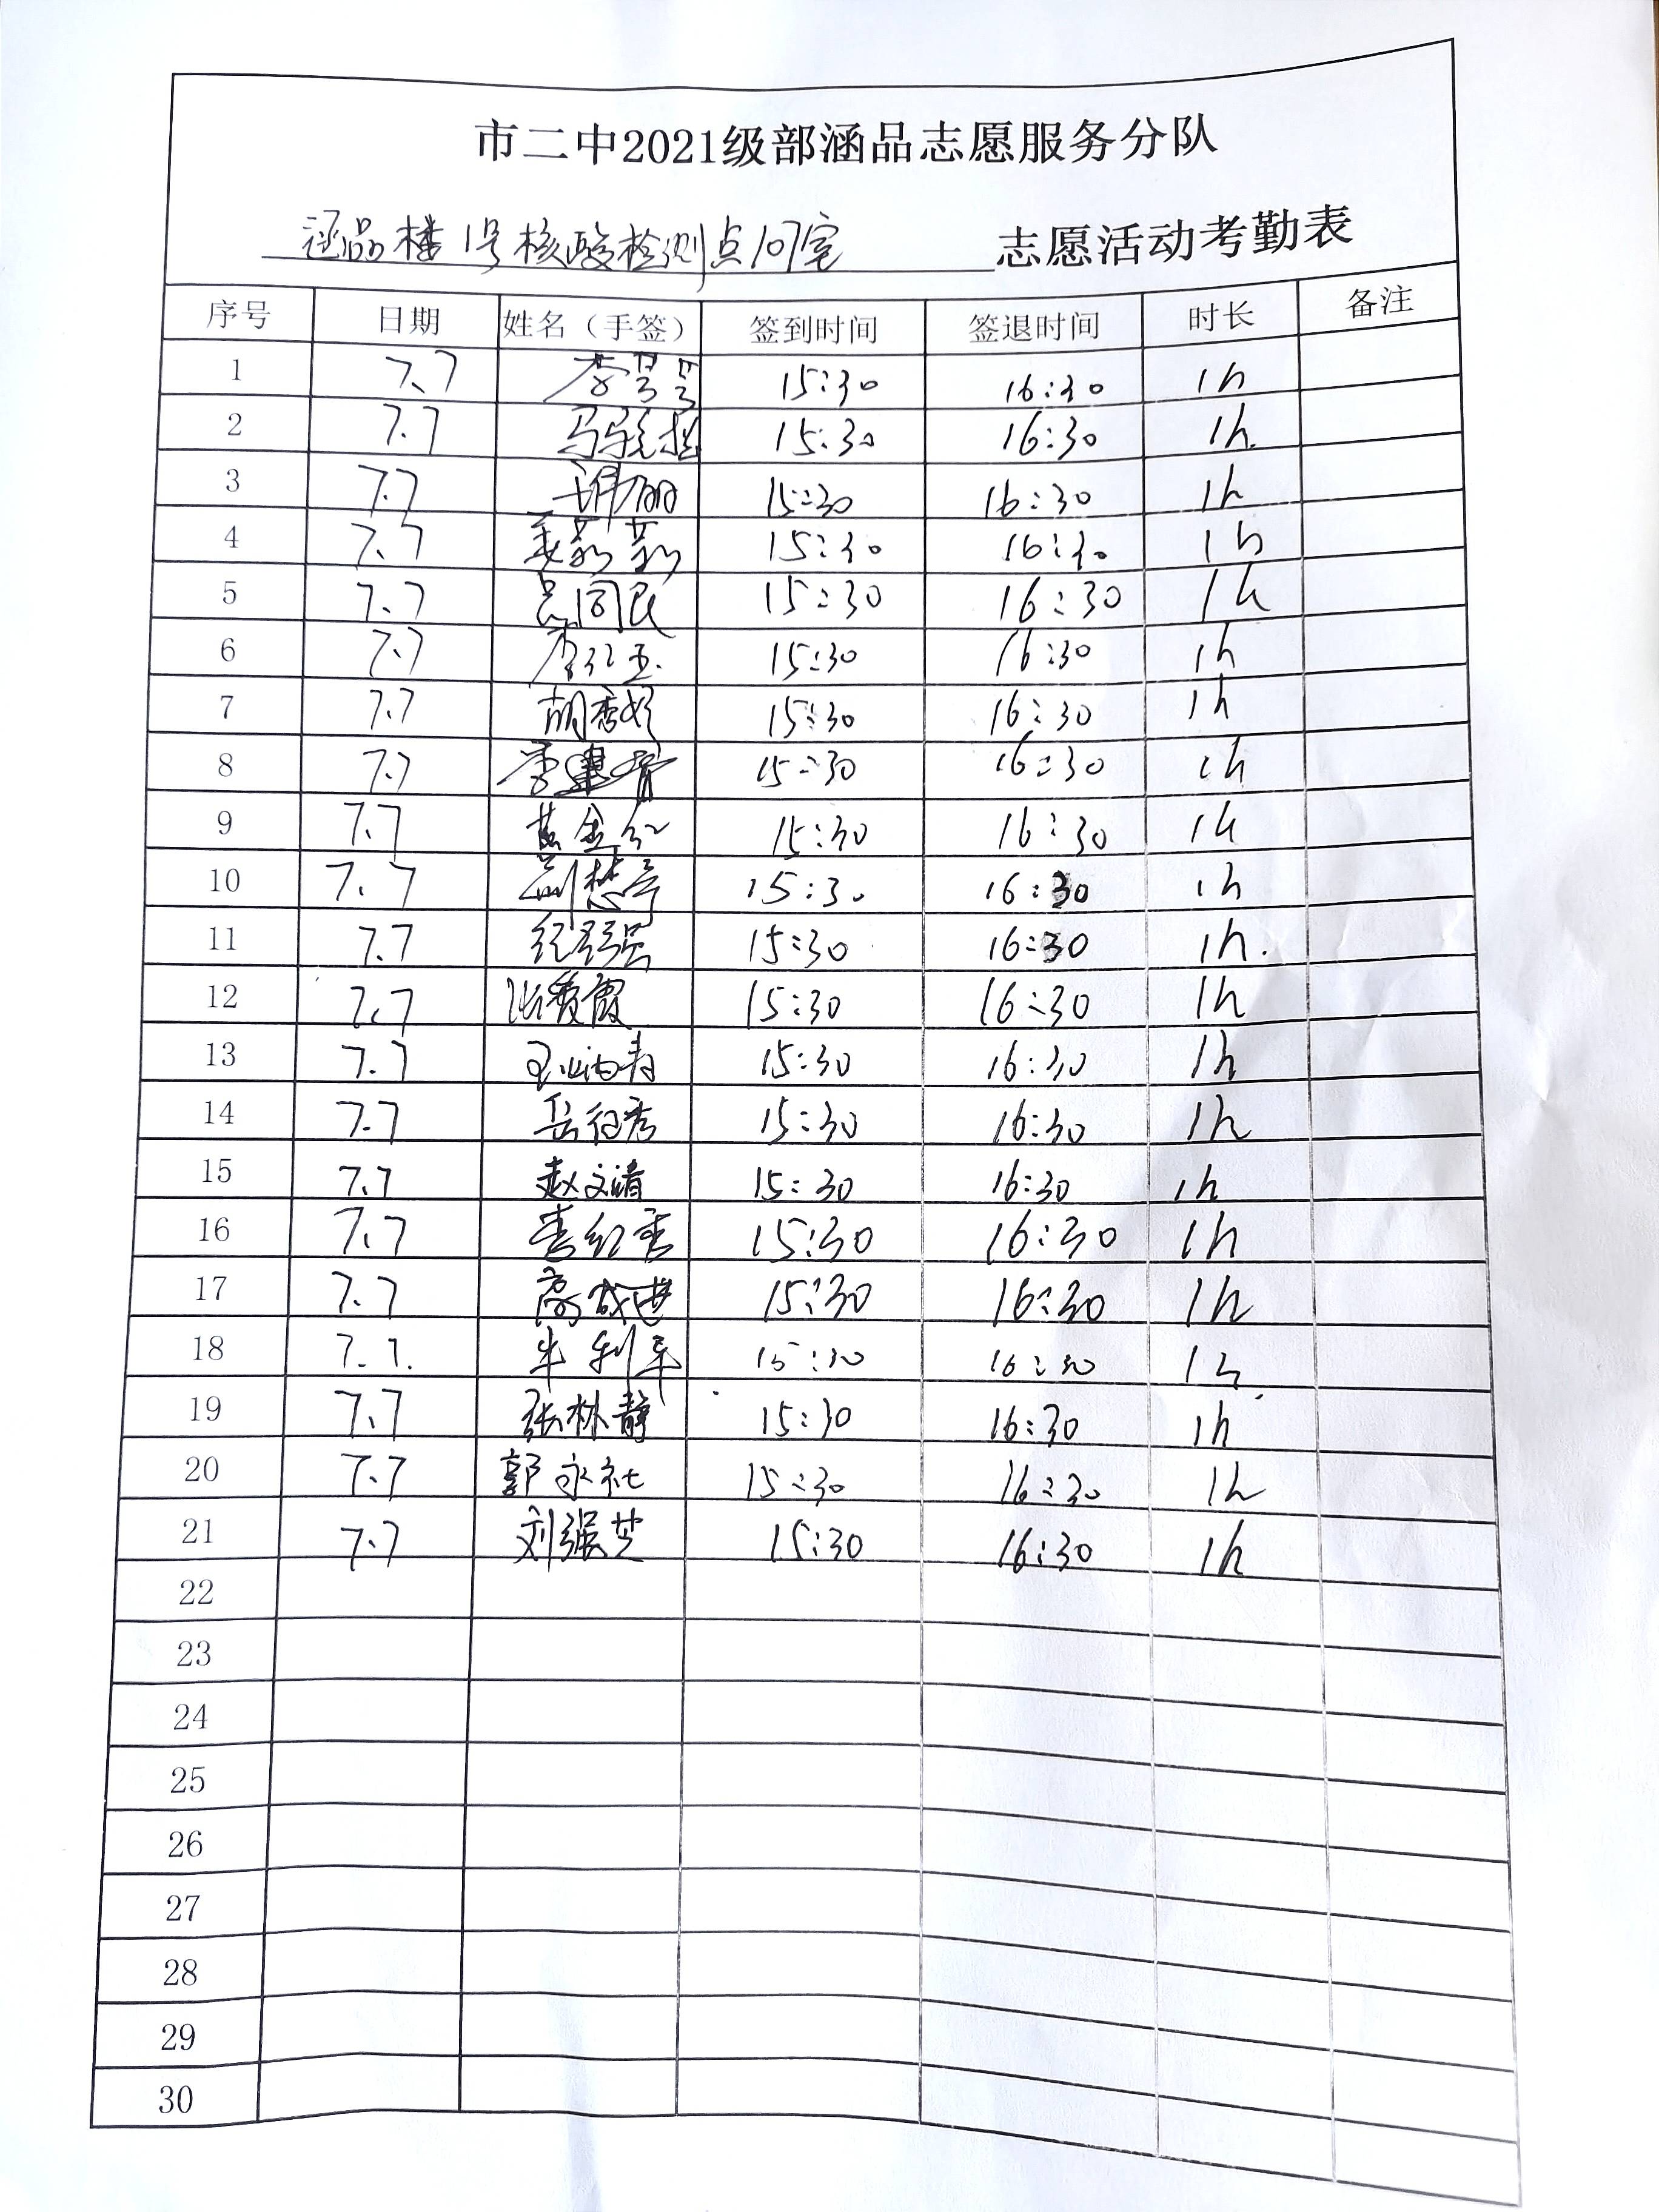 市二中2021级部涵品志愿服务分队
涵品楼1号核酸检测点107室 志愿活动考勤表
序号 日期 姓名（手签） 签到时间 签退时间 时长 备注
1 7.7 15:30 16:30 1h
2 7.7 15:30 16:30 1h.
3 7.7 15:30 16:30 1h
4 7.7 15:30 16:30 1h
5 7.7 15:30 16:30 1h
6 7.7 15:30 16:30 1h
7 7.7 15:30 16:30 1h
8 7.7 15:30 16:30 1h
9 7.7 黄金红 15:30 16:30 1h
10 7.7 15:30 16:30 1h
11 7.7 15:30 16:30 1h.
12 7.7 15:30 16:30 1h
13 7.7 15:30 16:30 1h
14 7.7 15:30 16:30 1h
15 7.7 赵文清 15:30 16:30 1h
16 7.7 15:30 16:30 1h
17 7.7 高成进 15:30 16:30 1h
18 7.7. 15:30 16:30 1h
19 7.7 张林静 15:30 16:30 1h
20 7.7 郭永社 15:30 16:30 1h
21 7.7 刘强芝 15:30 16:30 1h
22
23
24
25
26
27
28
29
30